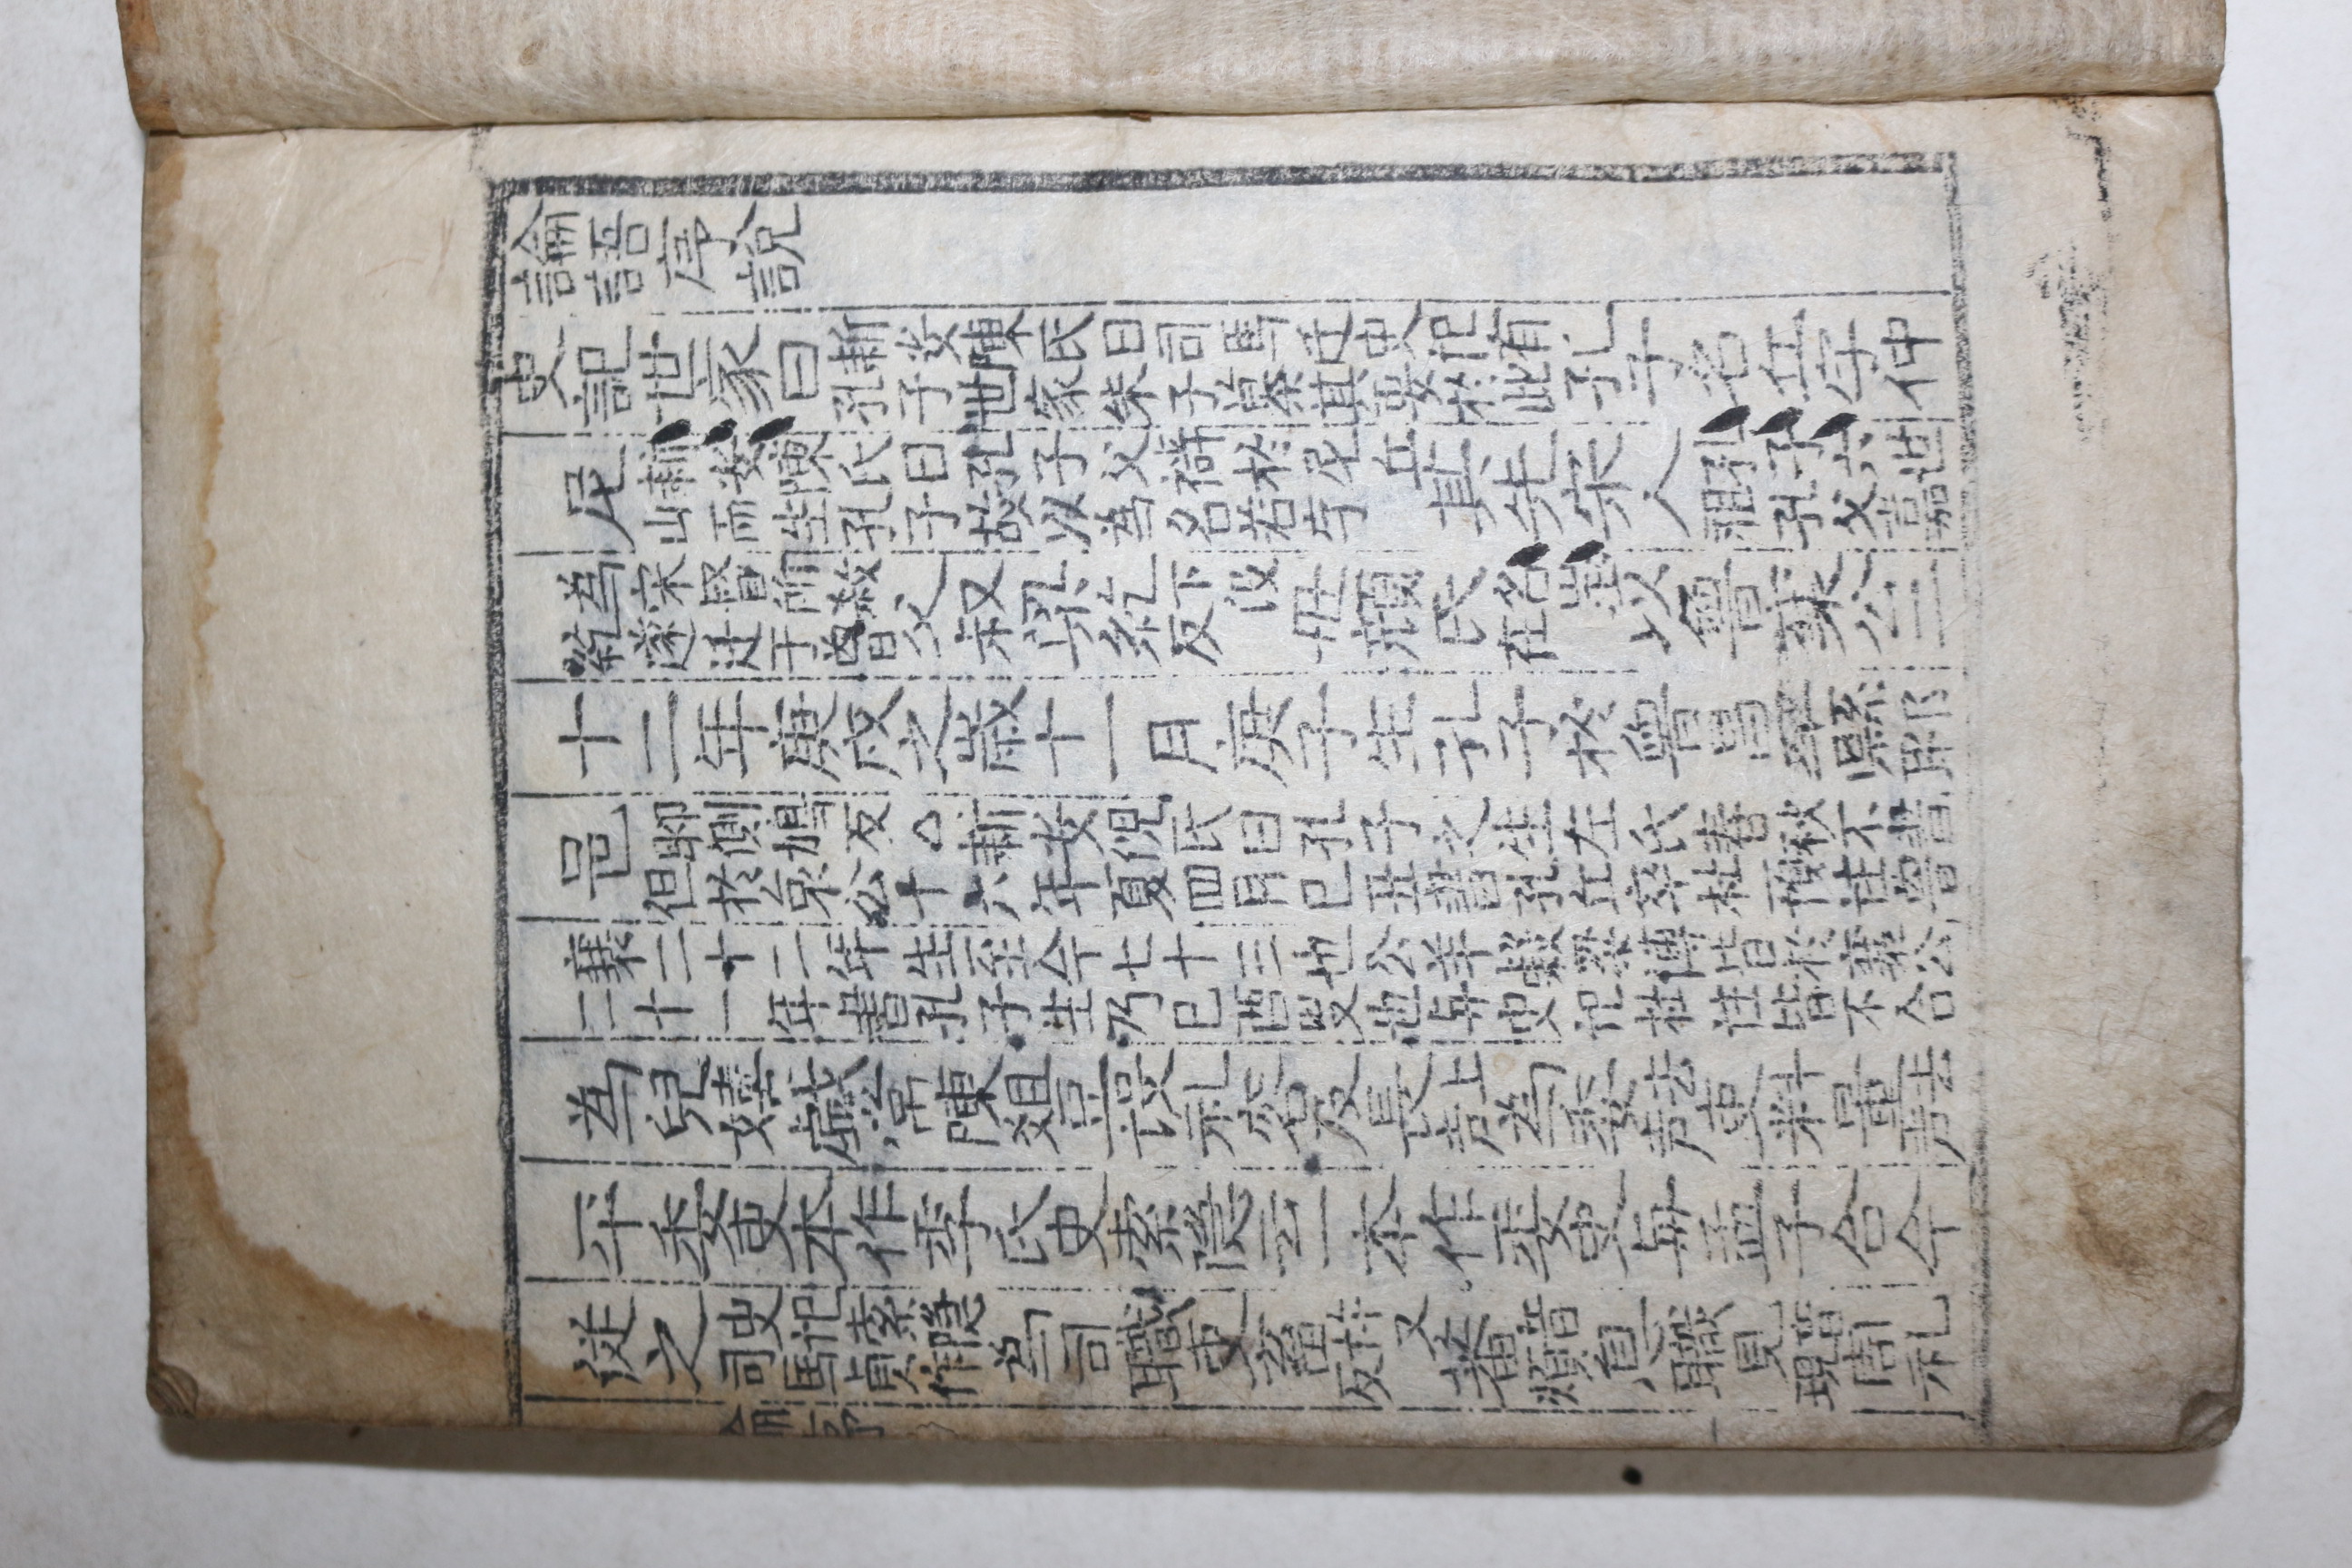 論語序說
史記世家曰新安陳氏曰司馬迁史記有孔子世家朱子纂其要於此孔子名丘字仲
尼新安陳氏曰孔子父禱於尼丘山而生孔子故以為名若字其先宋人孔子六世祖孔父嘉
為宋督所殺紇遂迁于魯父叔梁紇下没反母顔氏名徵在以魯襄公二
十二年庚戌之歲十一月庚子生孔子於魯昌平縣郰
邑郰側鳩反△新安倪氏曰孔子之生左氏春秋不書但於哀公十六年夏四月巳丑書孔丘卒杜預註魯
襄二十二年生至今七十三也公羊穀梁傳皆於襄公二十一年書孔子生乃巳酉歲也与史記杜註皆不合
為兒嬉戲常陳爼豆設礼容及長上声為委去声吏料量去声
平委吏本作季氏史索隐云一本作委吏与孟子合今
從之史記索隐司馬貞作為司職吏畜許又反蕃音煩息職見音現周礼
論序